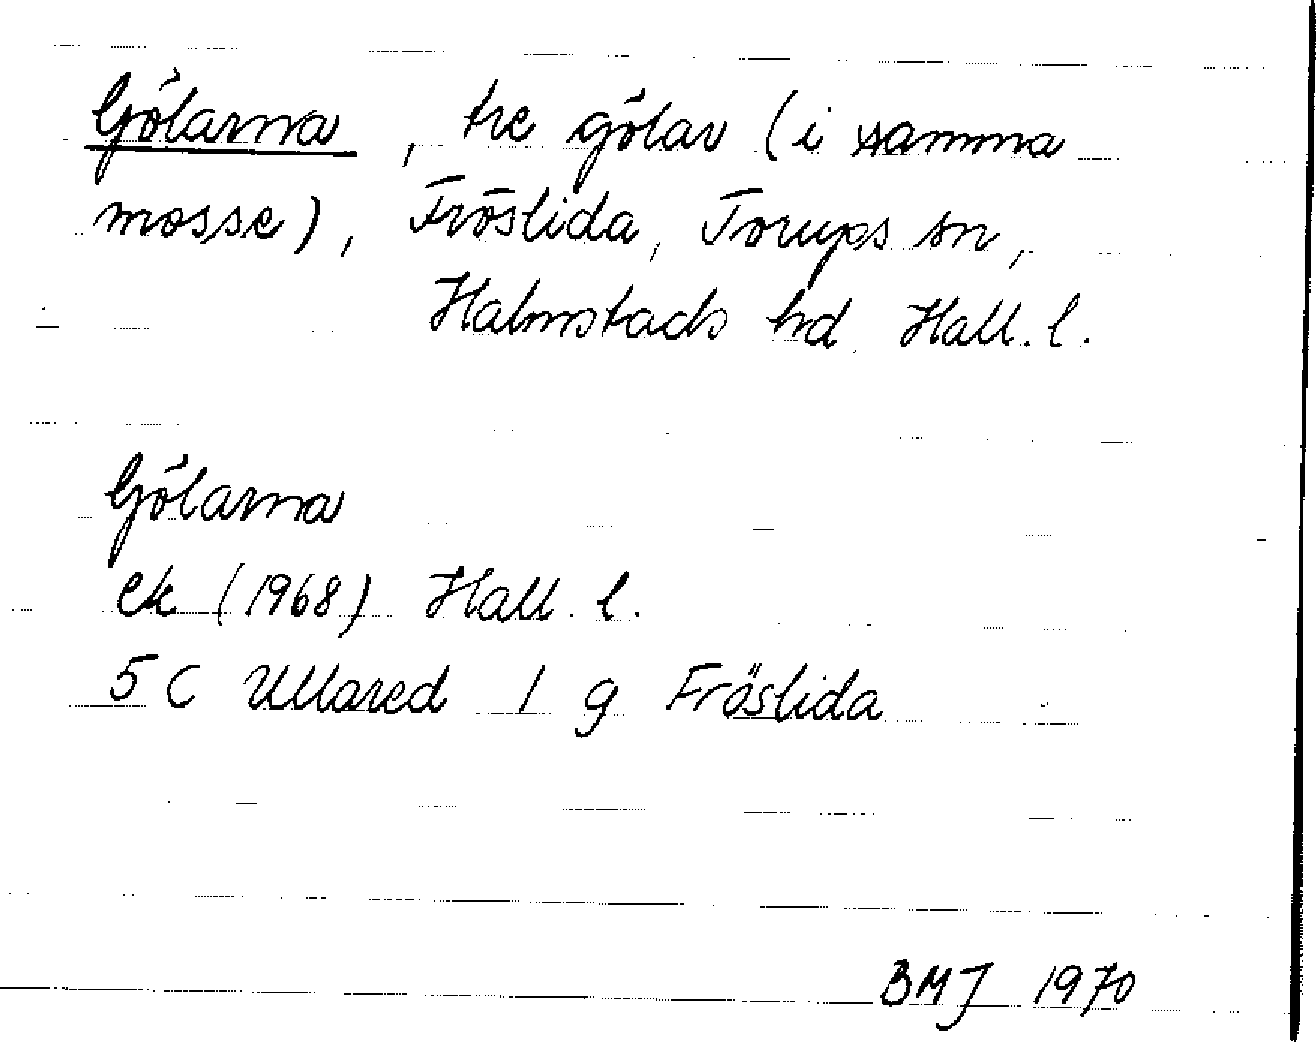 Gölarna, tre gölar (i samma
mosse), Fröslida, Torups sn,
Halmstads hd Hall. l.
Gölarna
ek (1968) Hall. l.
5 C Ullared 1 g Fröslida
BMJ 1970